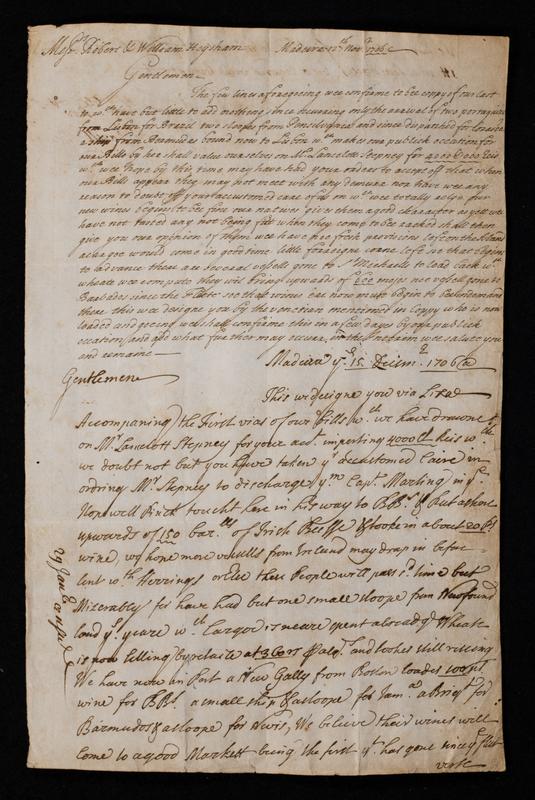 Messrs. Robert & William Heysham Madeira 12th Novr. 1706
Gentlemen
The few lines aforegoeing wee confirme to bee copy of our last
to wch. have but little to ad nothing since occurring only the arrivall of two portuguese
from Lisbon for Brazil two sloopes from Pensilvania and since dispatched for
a ship from Bermudas bound now to Lisbon wch. makes one publick occation for
our Bills by her shall value ourselves on Mr. Lancelott Stepney for 4000
wch. wee hope by this time may have had your orders to accept off that when
our Bills appear they may not meet with any demurr nor have wee any
reason to doubt off your accustomed care of us on wch. wee totally relye for
new wines begins to bee fine our natives gives them a good character as yett wee
have not tasted any not being fitt when they come to bee racked shall then
give you our opinion of them wee have noe fresh provisions left on the Island
a cargoe would come in good time little foraigne corne left so that begins
to advance there are severall vessells gone to St. Michaells to load back wth.
wheate wee compute they will bring upwards of 600 moyos noe vessell gone to
Barbados since the Fleete soe that wines bee now must begin to bee in demand
there this wee designe you by the Venetian mentioned in coppy who is now
loaded and goeing wee shall confirme this in a few days by off publick
occation, and add what further may occurr, in the Interim wee salute you
and remaine
Madeira ye. 15 Decem. 1706
Gentlemene
This wee designe you via
Accompaning the First vias of our Bills wth. we have drawne
on Mr. Lancelott Stepney for your acct. importing 4000 Reis wch.
we doubt not but you have taken ye accustomed Caire in
ordring Mr. Stepney to discharge ym. Cap. Marting in ye
Hopewell Pinck toucht here in his way to BBs. & Put ashore
upwards of 150 bar.lls of Irish Beeffe & tooke in about 20 Ps
wine, we hope more vessells from Ireland may drap in before
lent wth. Herrings or Else these People will pass sd. time but
Miserably for have had but one small sloope from Newfound
land ys. yeare wth. Cargoe is neare spent already Wheate
is now selling by retaile at 360 rs & alqr. and lookes still rissing
We have now in Port a New Gally from Boston loades 100 Ps
wine for BBs. a small ship & a sloope for Jam.a a Brigt. for
Barmudos & a sloope for Nevis, We believe their wines will
Come to a good Markett being the first yt. has gone since ye fleet